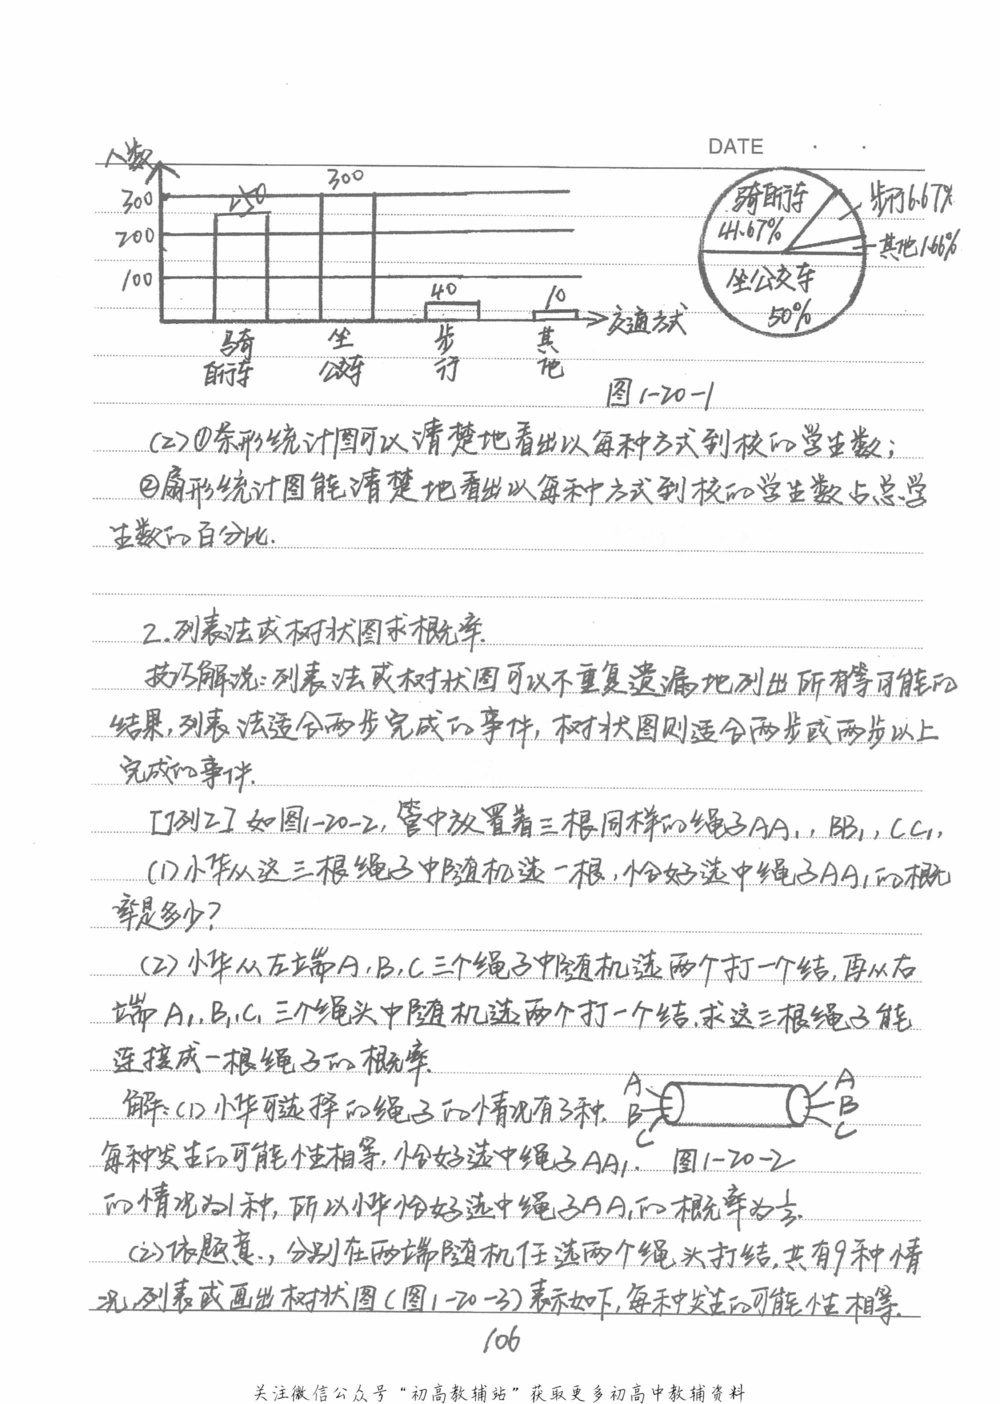 DATE
人数
300
200
100
250
300
40
10
骑自行车
坐公交车
步行
其他
交通方式
骑自行车
41.67%
步行6.67%
其他1.66%
坐公交车
50%
图1-20-1
(2)①条形统计图可以清楚地看出以每种方式到校的学生数;
②扇形统计图能清楚地看出以每种方式到校的学生数占总学
生数的百分比.
2.列表法或树状图求概率.
技巧解说:列表法或树状图可以不重复遗漏地列出所有等可能的
结果,列表法适合两步完成的事件,树状图则适合两步或两步以上
完成的事件.
[例2]如图1-20-2,管中放置着三根同样的绳子AA₁,BB₁,CC₁,
(1)小华从这三根绳子中随机选一根,恰好选中绳子AA₁的概
率是多少?
(2)小华从左端A,B,C三个绳子中随机选两个打一个结,再从右
端A₁,B₁,C₁三个绳头中随机选两个打一个结,求这三根绳子能
连接成一根绳子的概率.
解:(1)小华可选择的绳子的情况有3种.
A
B
C
A
B
C
每种发生的可能性相等,恰好选中绳子AA₁. 图1-20-2
的情况为1种,所以小华恰好选中绳子AA₁的概率为⅓.
(2)依题意,分别在两端随机任选两个绳头打结,共有9种情
况,列表或画出树状图(图1-20-3)表示如下,每种发生的可能性相等.
106
关注微信公众号“初高教辅站”获取更多初高中教辅资料